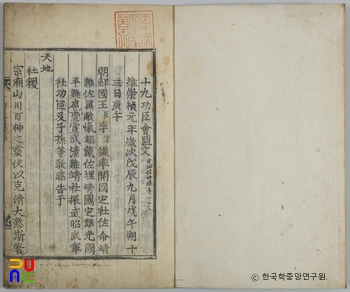 十九功臣會盟文
維崇禎元年歲次戊辰九月戊午朔十
三日庚午
朝鮮國王臣李 謹率開國定社佐命靖
難佐翼敵愾翊戴佐理靖國定難光國
平難扈聖宣武清難靖社振武昭武寧
社功臣及子孫等敢昭告于
天地
社稷
宗廟山川百神之靈伏以克清大憝斯策
ⓒ 한국학중앙연구원.